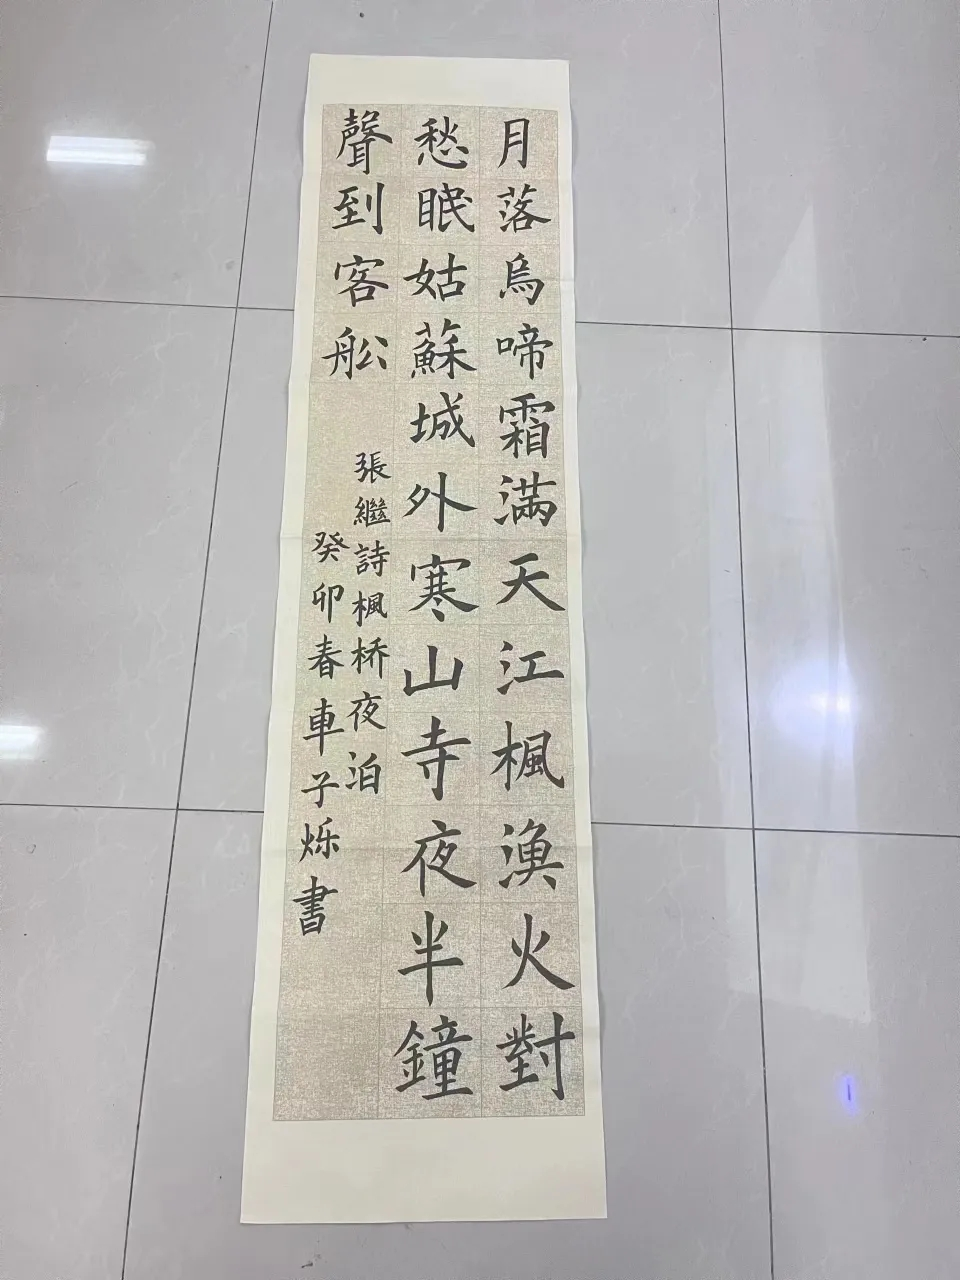 月落烏啼霜滿天江楓漁火對
愁眠姑蘇城外寒山寺夜半鐘
聲到客舩
張繼詩楓桥夜泊
癸卯春車子烁書